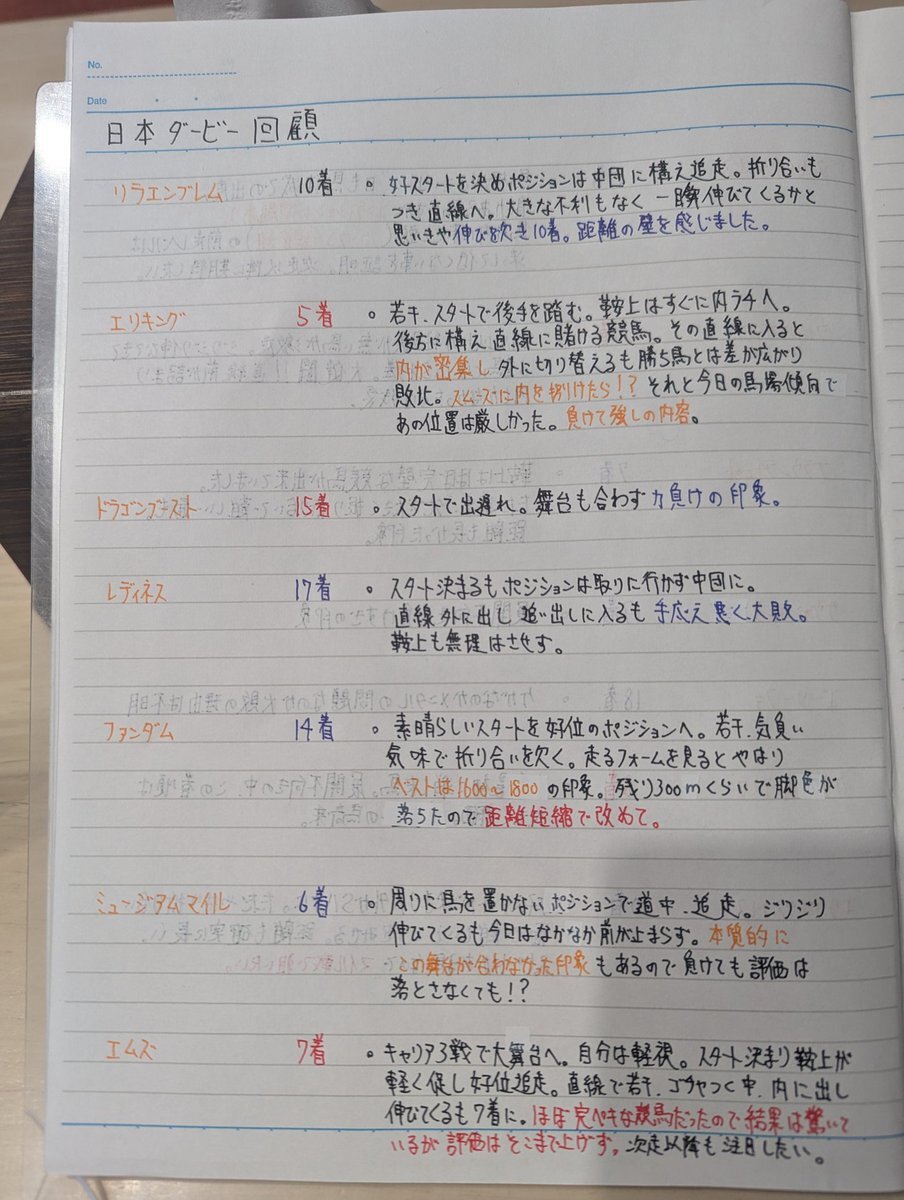 No.
Date
日本ダービー回顧
リラエンブレム 10着 。好スタートを決めポジションは中団に構え追走。折り合いも
つき直線へ。大きな不利もなく一瞬伸びてくるかと
思いきや伸びを欠き10着。距離の壁を感じました。
エリキング 5着 。若干、スタートで後手を踏む。鞍上はすぐに内ラチへ。
後方に構え直線に賭ける競馬。その直線に入ると
内が密集し外に切り替えるも勝ち馬とは差が広がり
敗北。スムーズに内を捌けたら!?それと今日の馬場傾向で
あの位置は厳しかった。負けて強しの内容。
ドラゴンブースト 15着 。スタートで出遅れ。舞台も合わず力負けの印象。
レディネス 17着 。スタート決まるもポジションは取りに行かず中団に。
直線外に出し追い出しに入るも手応え悪く大敗。
鞍上も無理はさせず。
ファンダム 14着 。素晴らしいスタートを好位のポジションへ。若干、気負い
気味で折り合いを欠く。走るフォームを見るとやはり
ベストは1600〜1800の印象。残り300mくらいで脚色が
落ちたので距離短縮で改めて。
ミュージアムマイル 6着 。周りに馬を置かないポジションで道中、追走。ジワジワ
伸びてくるも今日はなかなか前が止まらず。本質的に
この舞台が合わなかった印象もあるので負けても評価は
落とさなくても!?
エムズ 7着 。キャリア3戦で大舞台へ。自分は軽視。スタート決まり鞍上が
軽く促し好位追走。直線で若干、ゴチャつく中、内に出し
伸びてくるも7着に。ほぼ完ペキな競馬だったので結果は驚いて
いるが評価はそこまで上げず。次走以降も注目したい。